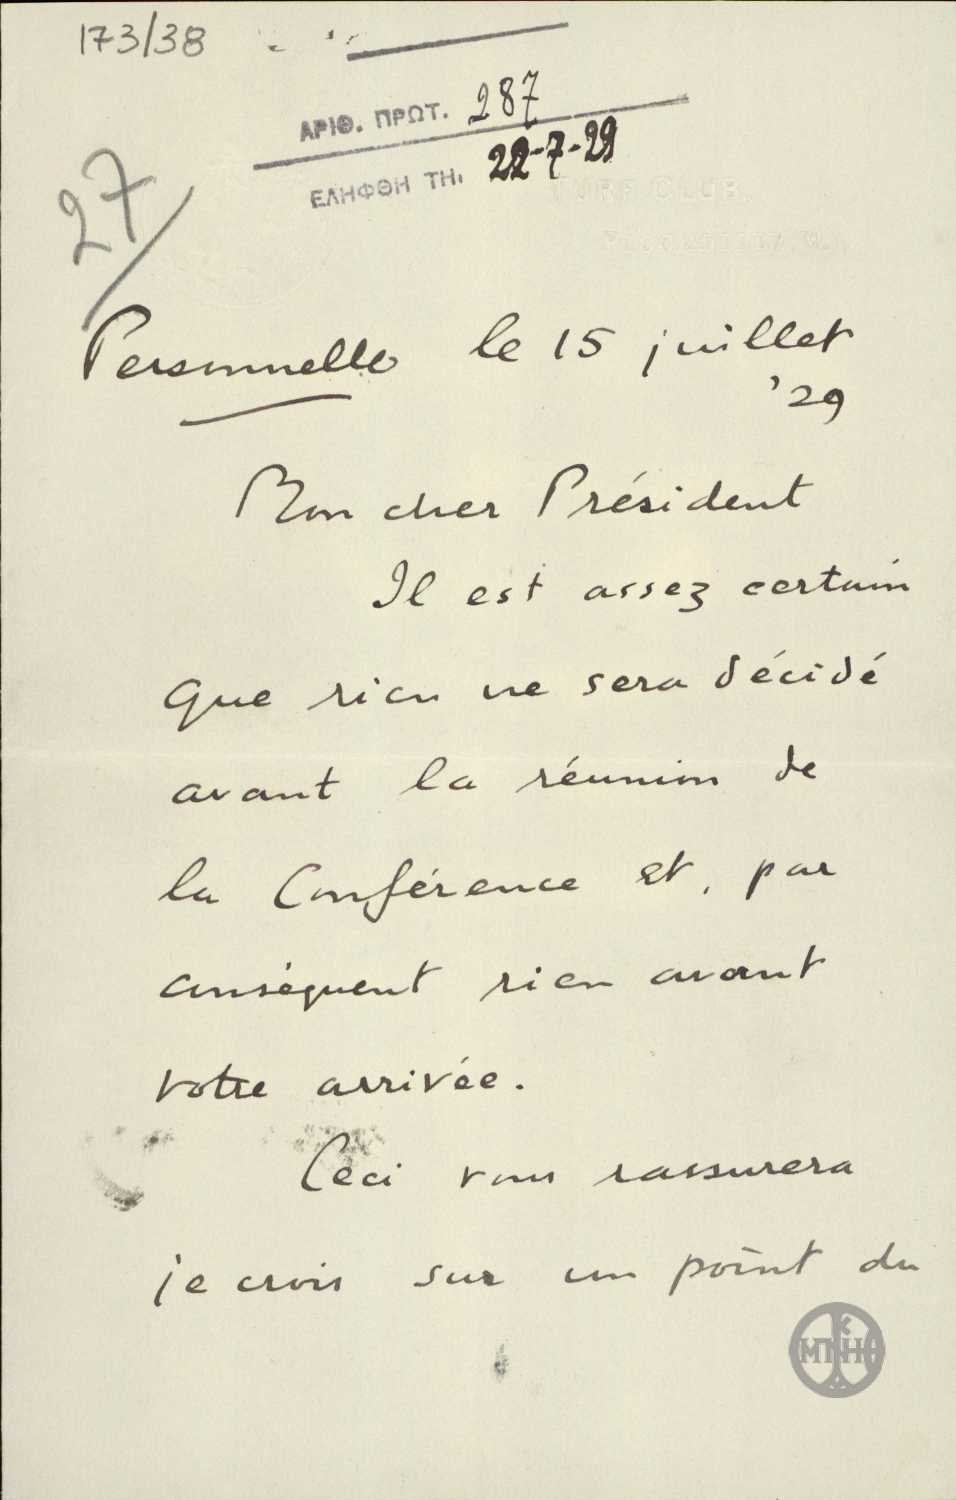 173/38
ΑΡΙΘ. ΠΡΩΤ. 287
ΕΛΗΦΘΗ ΤΗ. 22-7-29
TURF CLUB
27/
Personnelle le 15 juillet
'29
Mon cher Président
Il est assez certain
que rien ne sera décidé
avant la réunion de
la Conférence et, par
conséquent rien avant
votre arrivée.
Ceci vous rassurera
je crois sur un point du
ΜΠΗΚ